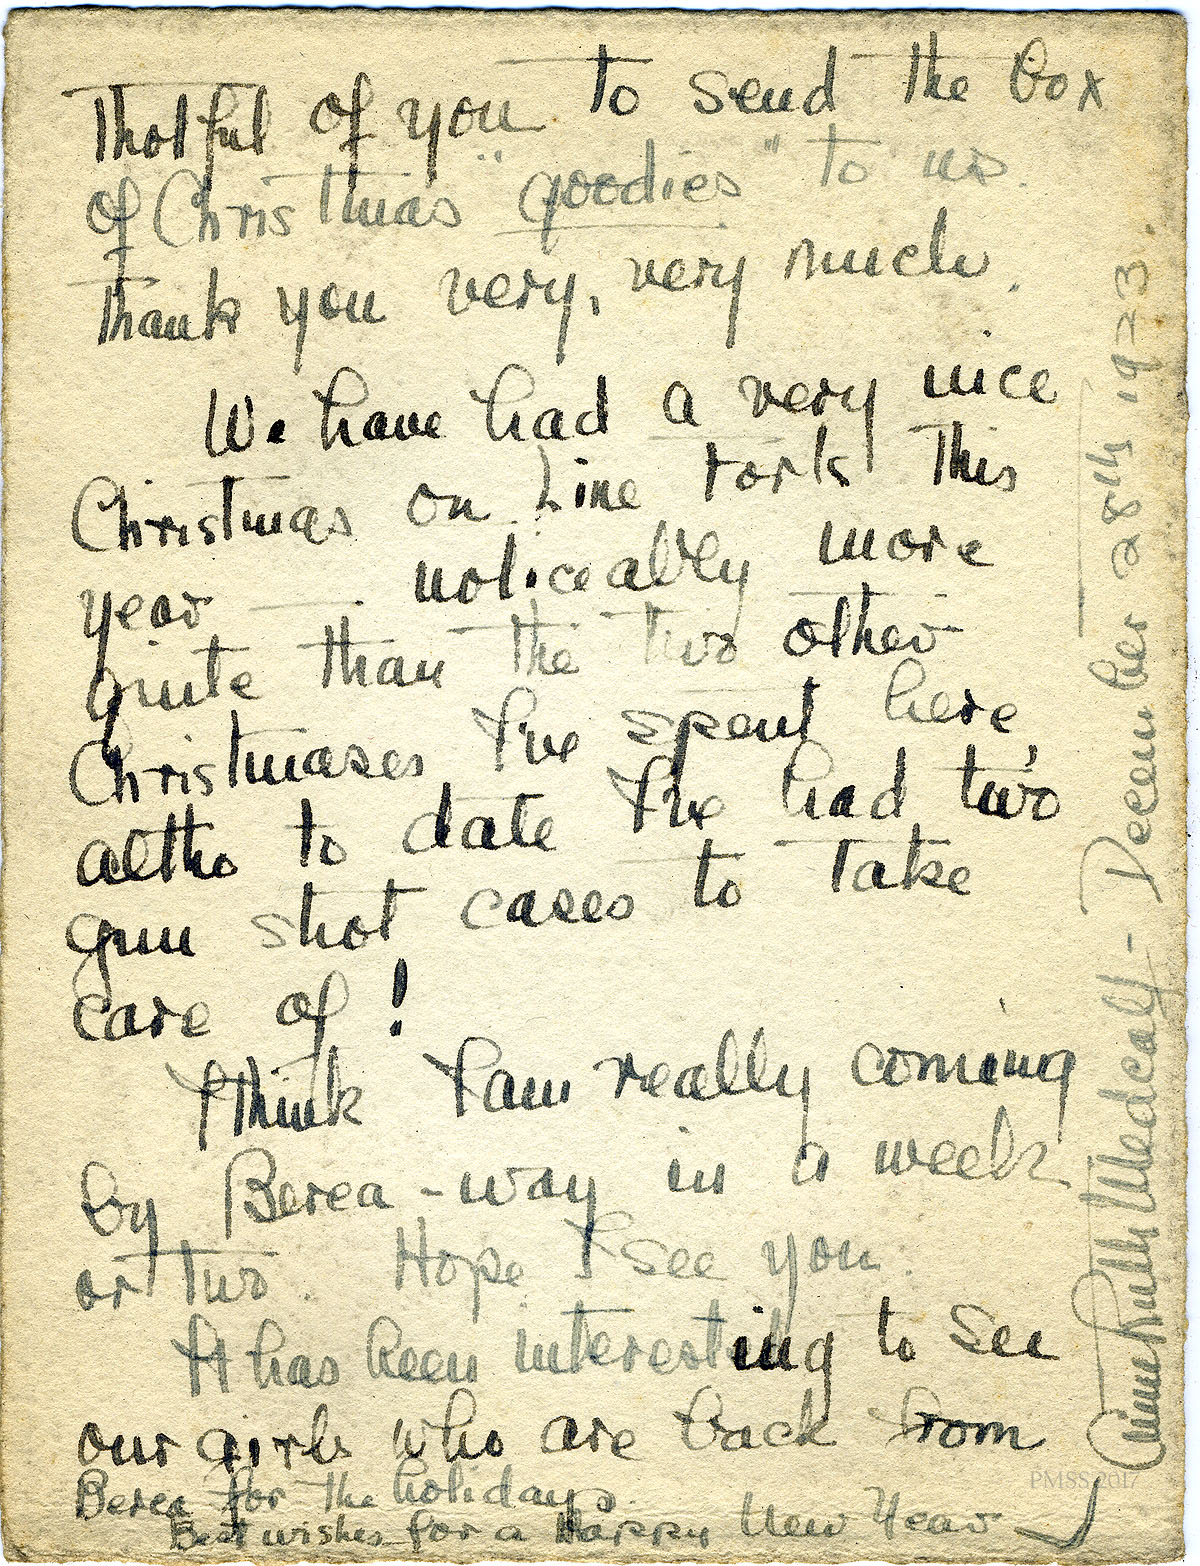 Thotful of you to send the box
of Christmas "goodies" to us.
Thank you very, very much.
We have had a very nice
Christmas on Line Fork this
year — noticeably more
quite than the two other
Christmases I've spent here,
altho to date I've had two
gun shot cases to take
care of!
I think I am really coming
by Berea-way in a week
or two. Hope I see you.
It has been interesting to see
our girls who are back from
Berea for the holidays.
Best wishes for a Happy New Year
Anne Ruth Medcalf - December 28th 1923.
PMSS 2017